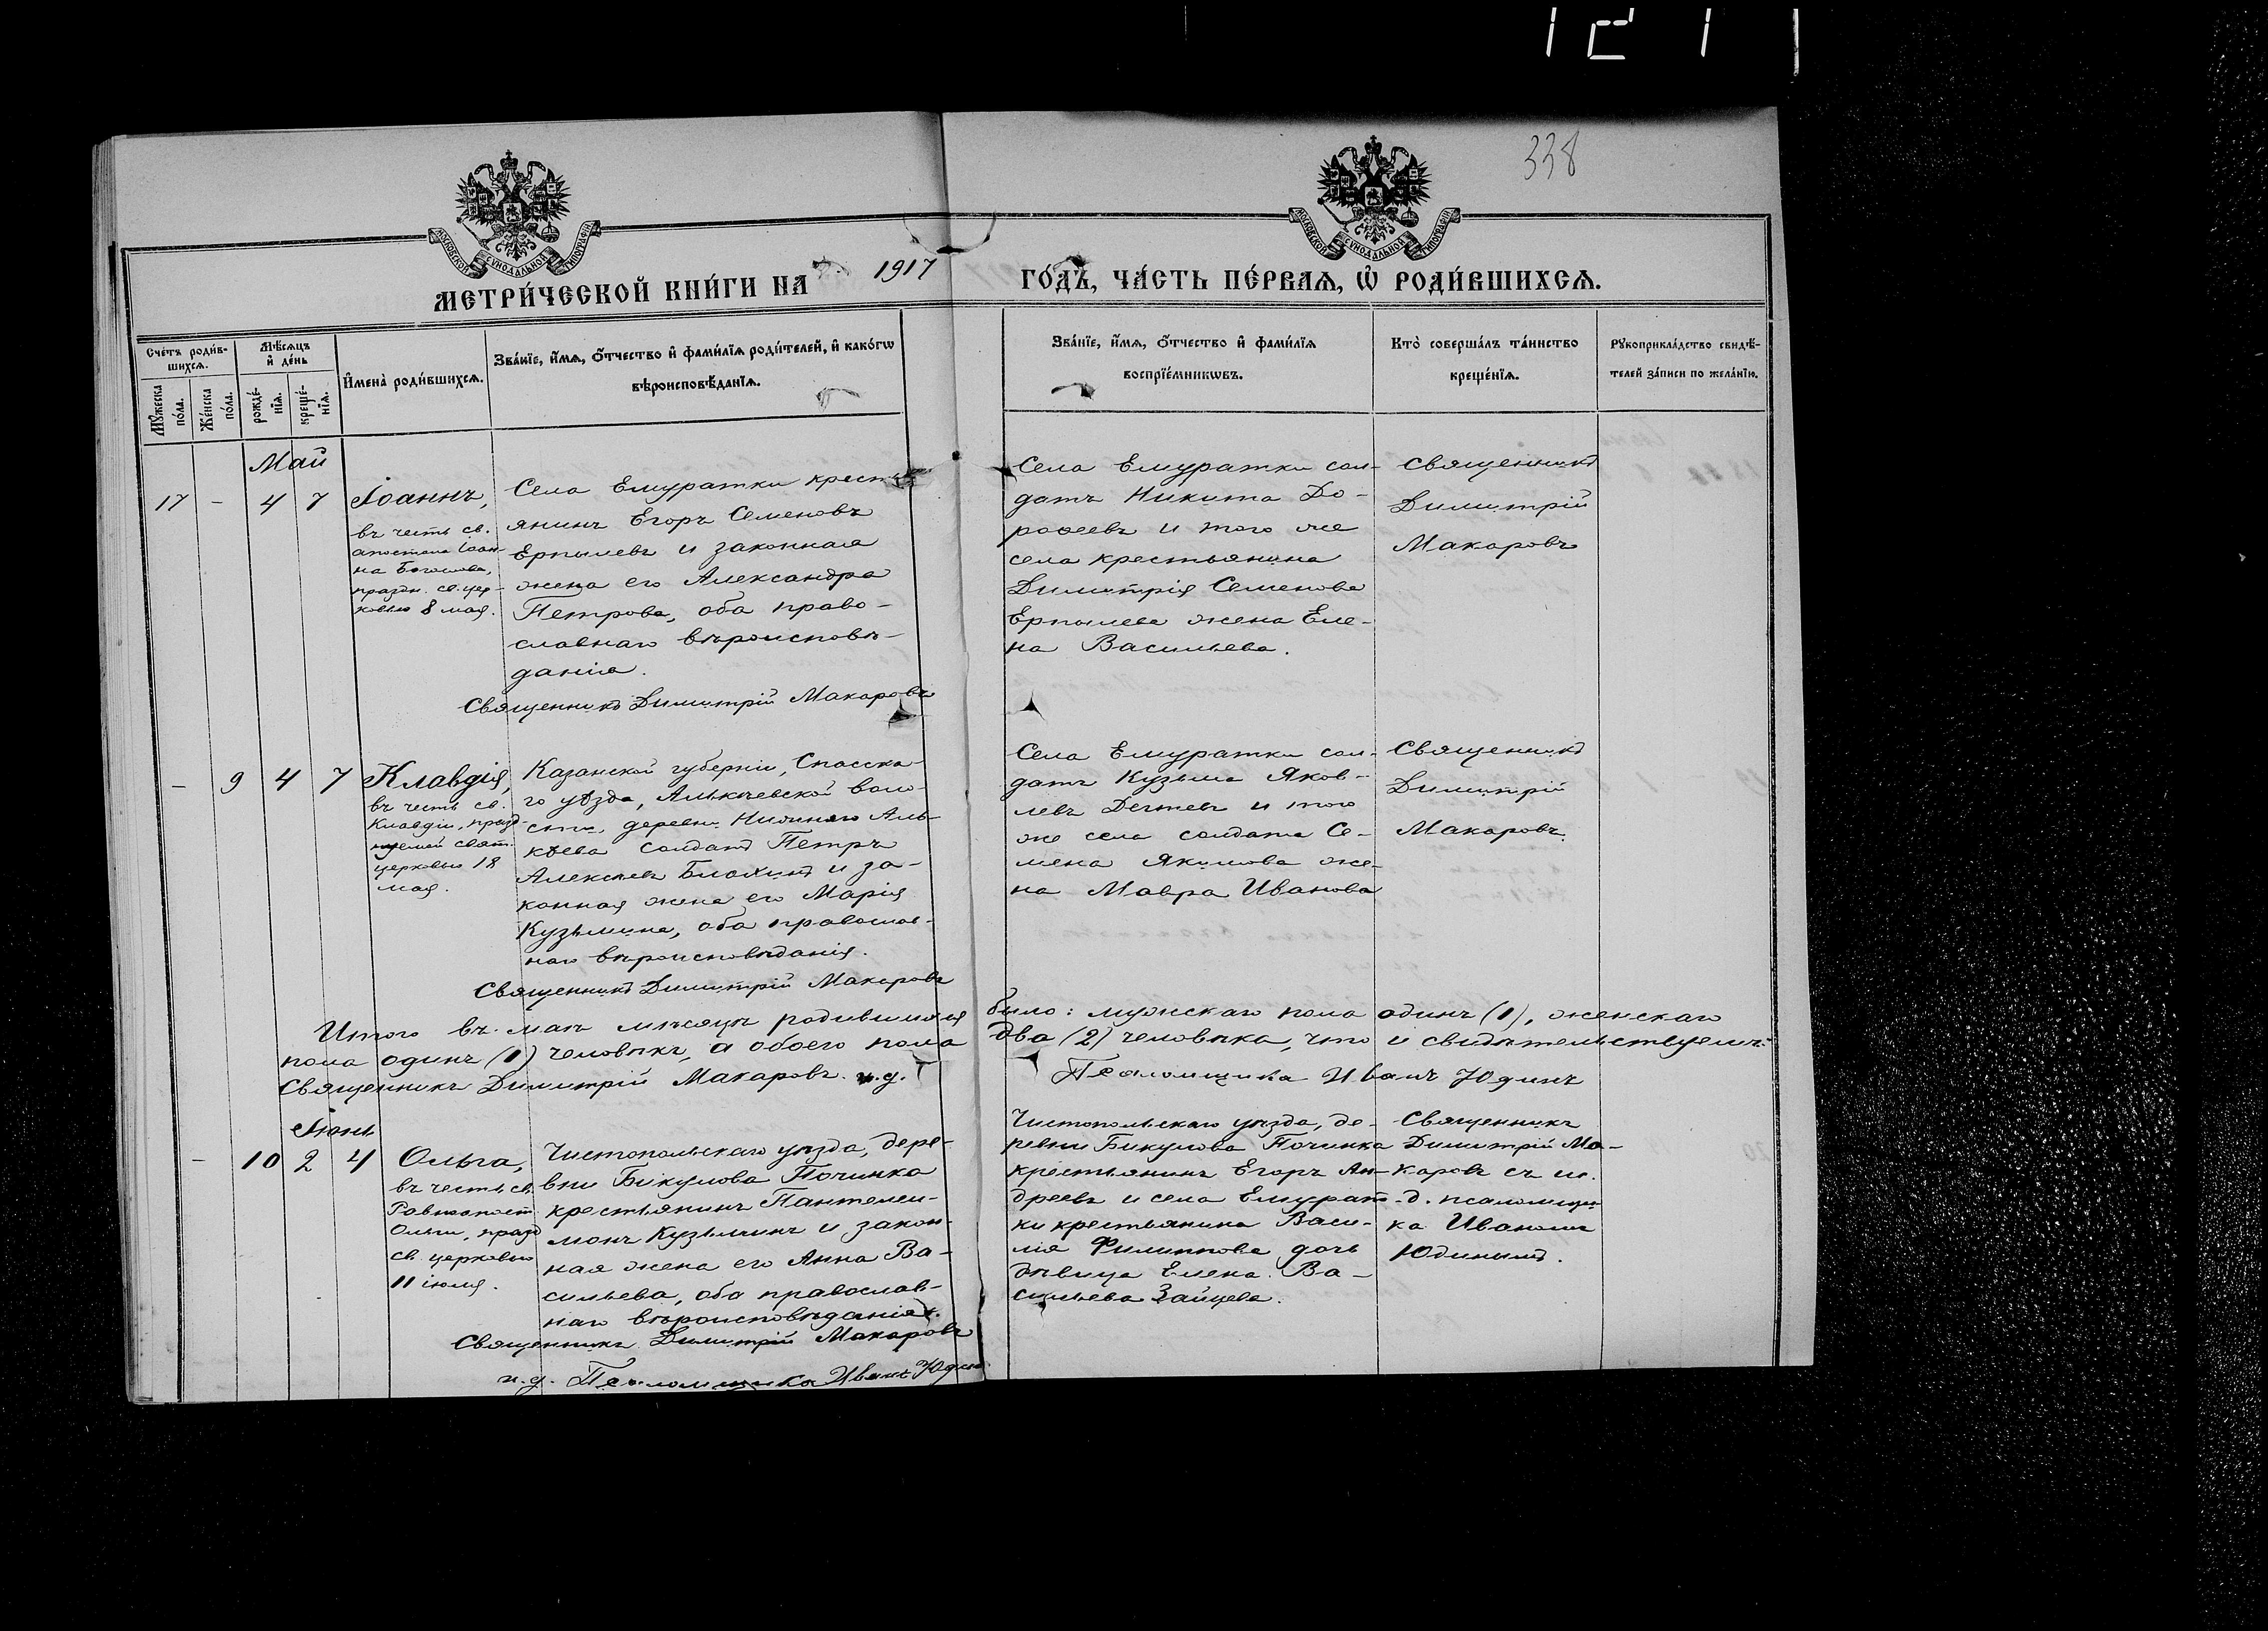 338
МОСКОВСКОЙ СѴНОДАЛЬНОЙ ТИПОГРАФІИ
МОСКОВСКОЙ СѴНОДАЛЬНОЙ ТИПОГРАФІИ
МЕТРИ́ЧЕСКОЙ КНИ́ГИ НА 1917 ГО́ДЪ, ЧА́СТЬ ПЕ́РВАѦ, Ѽ РОДИ́ВШИХСѦ.
Счетъ роди́в-
шихсѧ.
Мꙋжеска
по́ла.
Же́нска
по́ла.
Мѣ́сѧцъ
и҆ де́нь
рожде́-
нїѧ.
креще́-
нїѧ.
И҆мена̀ роди́вшихсѧ.
Зва́нїе, и҆́мѧ, ѻ҆́тчество и҆ фами́лїѧ роди́телей, и҆ како́гѡ
вѣроисповѣ́данїѧ.
Зва́нїе, и҆́мѧ, ѻ҆́тчество и҆ фами́лїѧ
воспрїе́мникѡвъ.
Кто̀ соверша́лъ та́инство
креще́нїѧ.
Рꙋкоприкла́дство свидѣ́-
телей за́писи по жела́нїю.
Май
17 - 4 7
Іоаннъ,
въ честь св.
апостола Іоан-
на Богослова,
праздн. св. цер-
ковью 8 мая.
Села Емуратки кресть-
янинъ Егоръ Семеновъ
Ерпылевъ и законная
жена его Александра
Петрова, оба право-
славнаго вѣроисповѣ-
данія.
Священникъ Димитрій Макаровъ
Села Емуратки сол-
датъ Никита До-
рофеевъ и того же
села крестьянина
Димитрія Семенова
Ерпылева жена Еле-
на Васильева.
Священникъ
Димитрій
Макаровъ
- 9 4 7
Клавдія,
въ честь св.
Клавдіи, празд-
нуемой свят.
церковью 18
мая.
Казанской губерніи, Спасска-
го уѣзда, Алькѣевской воло-
сти, деревни Нижняго Аль-
кѣева солдатъ Петръ
Алексѣевъ Блохинъ и за-
конная жена его Марія
Кузьмина, оба православ-
наго вѣроисповѣданія.
Священникъ Димитрій Макаровъ
Села Емуратки сол-
датъ Кузьма Яков-
левъ и того
же села солдата Се-
мена Якимова же-
на Мавра Иванова
Священникъ
Димитрій
Макаровъ.
Итого въ маѣ мѣсяцѣ родившихся было: мужскаго пола одинъ (1), женскаго
пола одинъ (1) человѣкъ, а обоего пола два (2) человѣка, что и свидѣтельствуемъ:
Священникъ Димитрій Макаровъ. и.д. Псаломщика Иванъ Юдинъ
Іюнь
- 10 2 4
Ольга,
въ честь св.
Равноапост.
Ольги, празд
св. церковью
11 іюля.
Чистопольскаго уѣзда, дере-
вни Бикулова Починка
крестьянинъ Пантелеи-
монъ Кузьминъ и закон-
ная жена его Анна Ва-
сильева, оба православ-
наго вѣроисповѣданія.
Священникъ Димитрій Макаровъ
и.д. Псаломщика Иванъ Юдинъ
Чистопольскаго уѣзда, де-
ревни Бикулова Починка
крестьянинъ Егоръ Ан-
дреевъ и села Емурат-
ки крестьянина Васи-
лія Филиппова дочь
дѣвица Елена Ва-
сильева Зайцева.
Священникъ
Димитрій Ма-
каровъ съ и.
д. псаломщи-
ка Иваномъ
Юдинымъ.